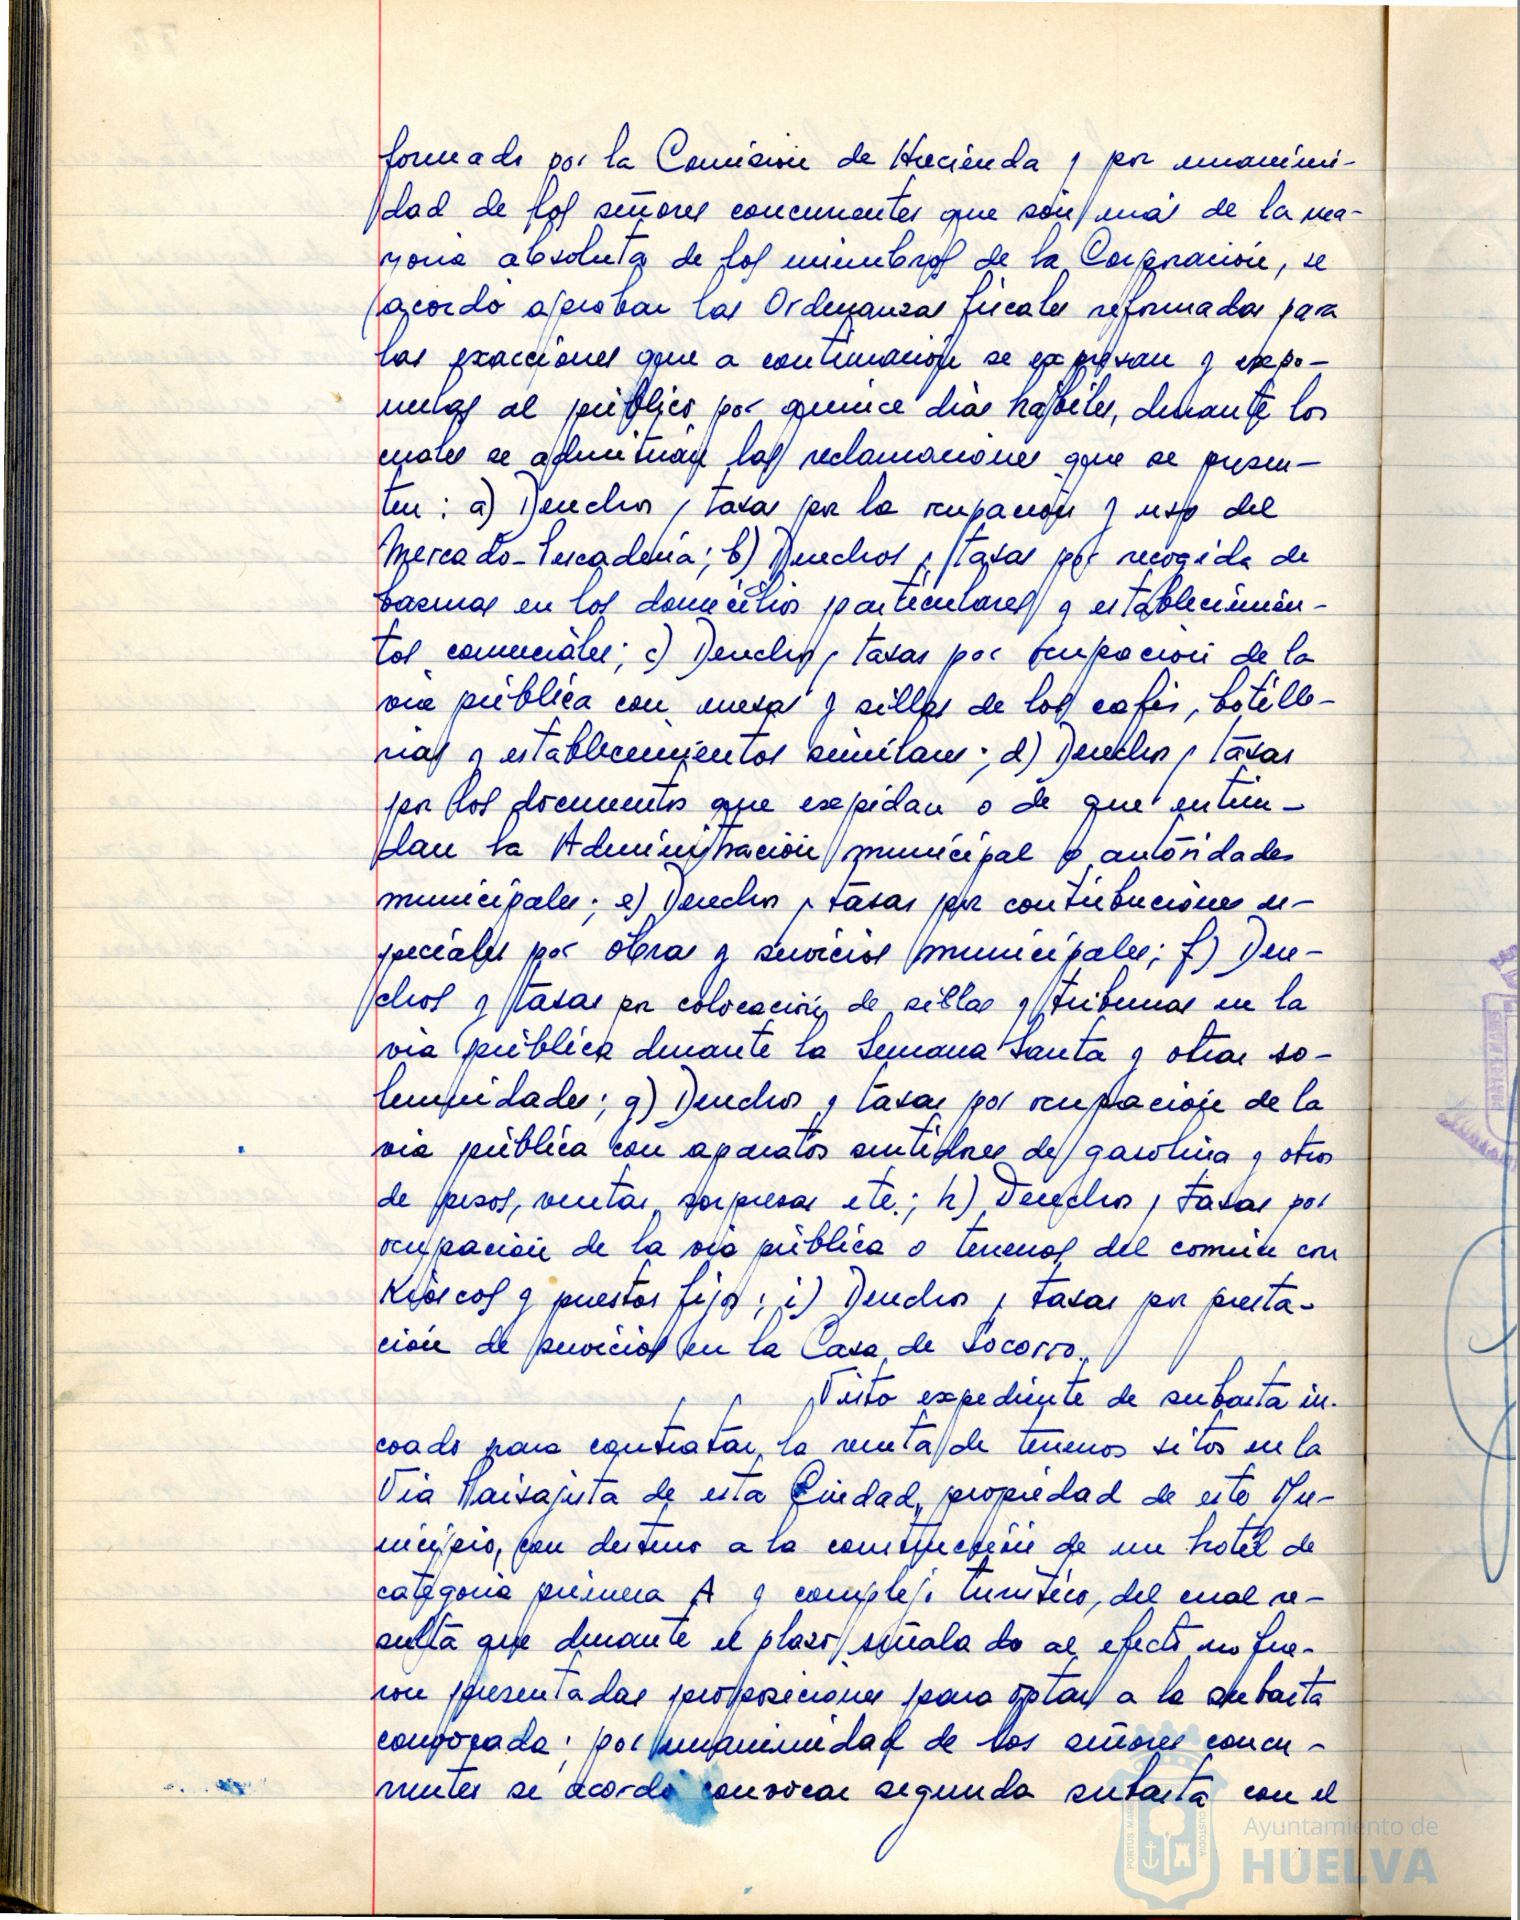 formado por la Comisión de Hacienda y por unanimi-
dad de los señores concurrentes que son más de la ma-
yoria absoluta de los miembros de la Corporación, se
acordó aprobar las Ordenanzas fiscales reformadas para
las exacciones que a continuación se expresan y expo-
nerlas al público por quince dias hábiles, durante los
cuales se admitirán las reclamaciones que se presen-
ten: a) Derechos y tasas por la ocupación y uso del
Mercado-Pescadería; b) Derechos y tasas por recogida de
basuras en los domicilios particulares y establecimien-
tos comerciales; c) Derechos y tasas por ocupación de la
via pública con mesas y sillas de los cafés, botille-
rias y establecimientos similares; d) Derechos y tasas
por los documentos que expidan o de que entien-
dan la Administración municipal o autoridades
municipales; e) Derechos y tasas por contribuciones es-
peciales por obras y servicios municipales; f) Dere-
chos y tasas por colocación de sillas y tribunas en la
via pública durante la Semana Santa y otras so-
lemnidades; g) Derechos y tasas por ocupación de la
via pública con aparatos surtidores de gasolina y otros
de pesos, ventas, sorpresas etc.; h) Derechos y tasas por
ocupación de la via pública o terrenos del común con
Kioscos y puestos fijos; i) Derechos y tasas por presta-
ción de servicios en la Casa de Socorro.
Visto expediente de subasta in-
coado para contratar la venta de terrenos sitos en la
Via Paisajista de esta Ciudad, propiedad de este Mu-
nicipio, con destino a la construcción de un hotel de
categoria primera A y complejo turistico, del cual re-
sulta que durante el plazo señalado al efecto no fue-
ron presentadas proposiciones para optar a la subasta
convocada; por unanimidad de los señores concu-
rrentes se acordó convocar segunda subasta con el
PORTUS MARIS
CUSTODIA
Ayuntamiento de
HUELVA